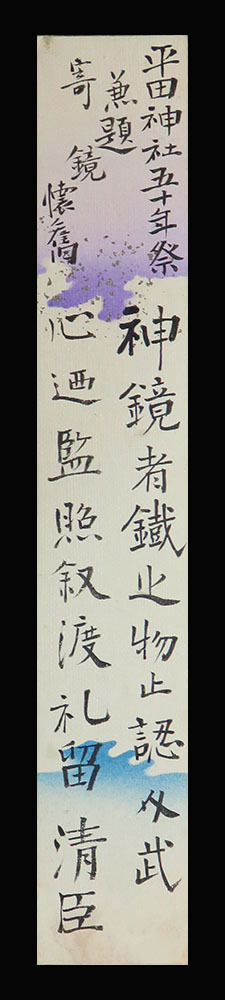 平田神社五十年祭
兼題
寄鏡懐舊
神鏡者鐵之物止認久武
心迺監照叙渡礼留 清臣